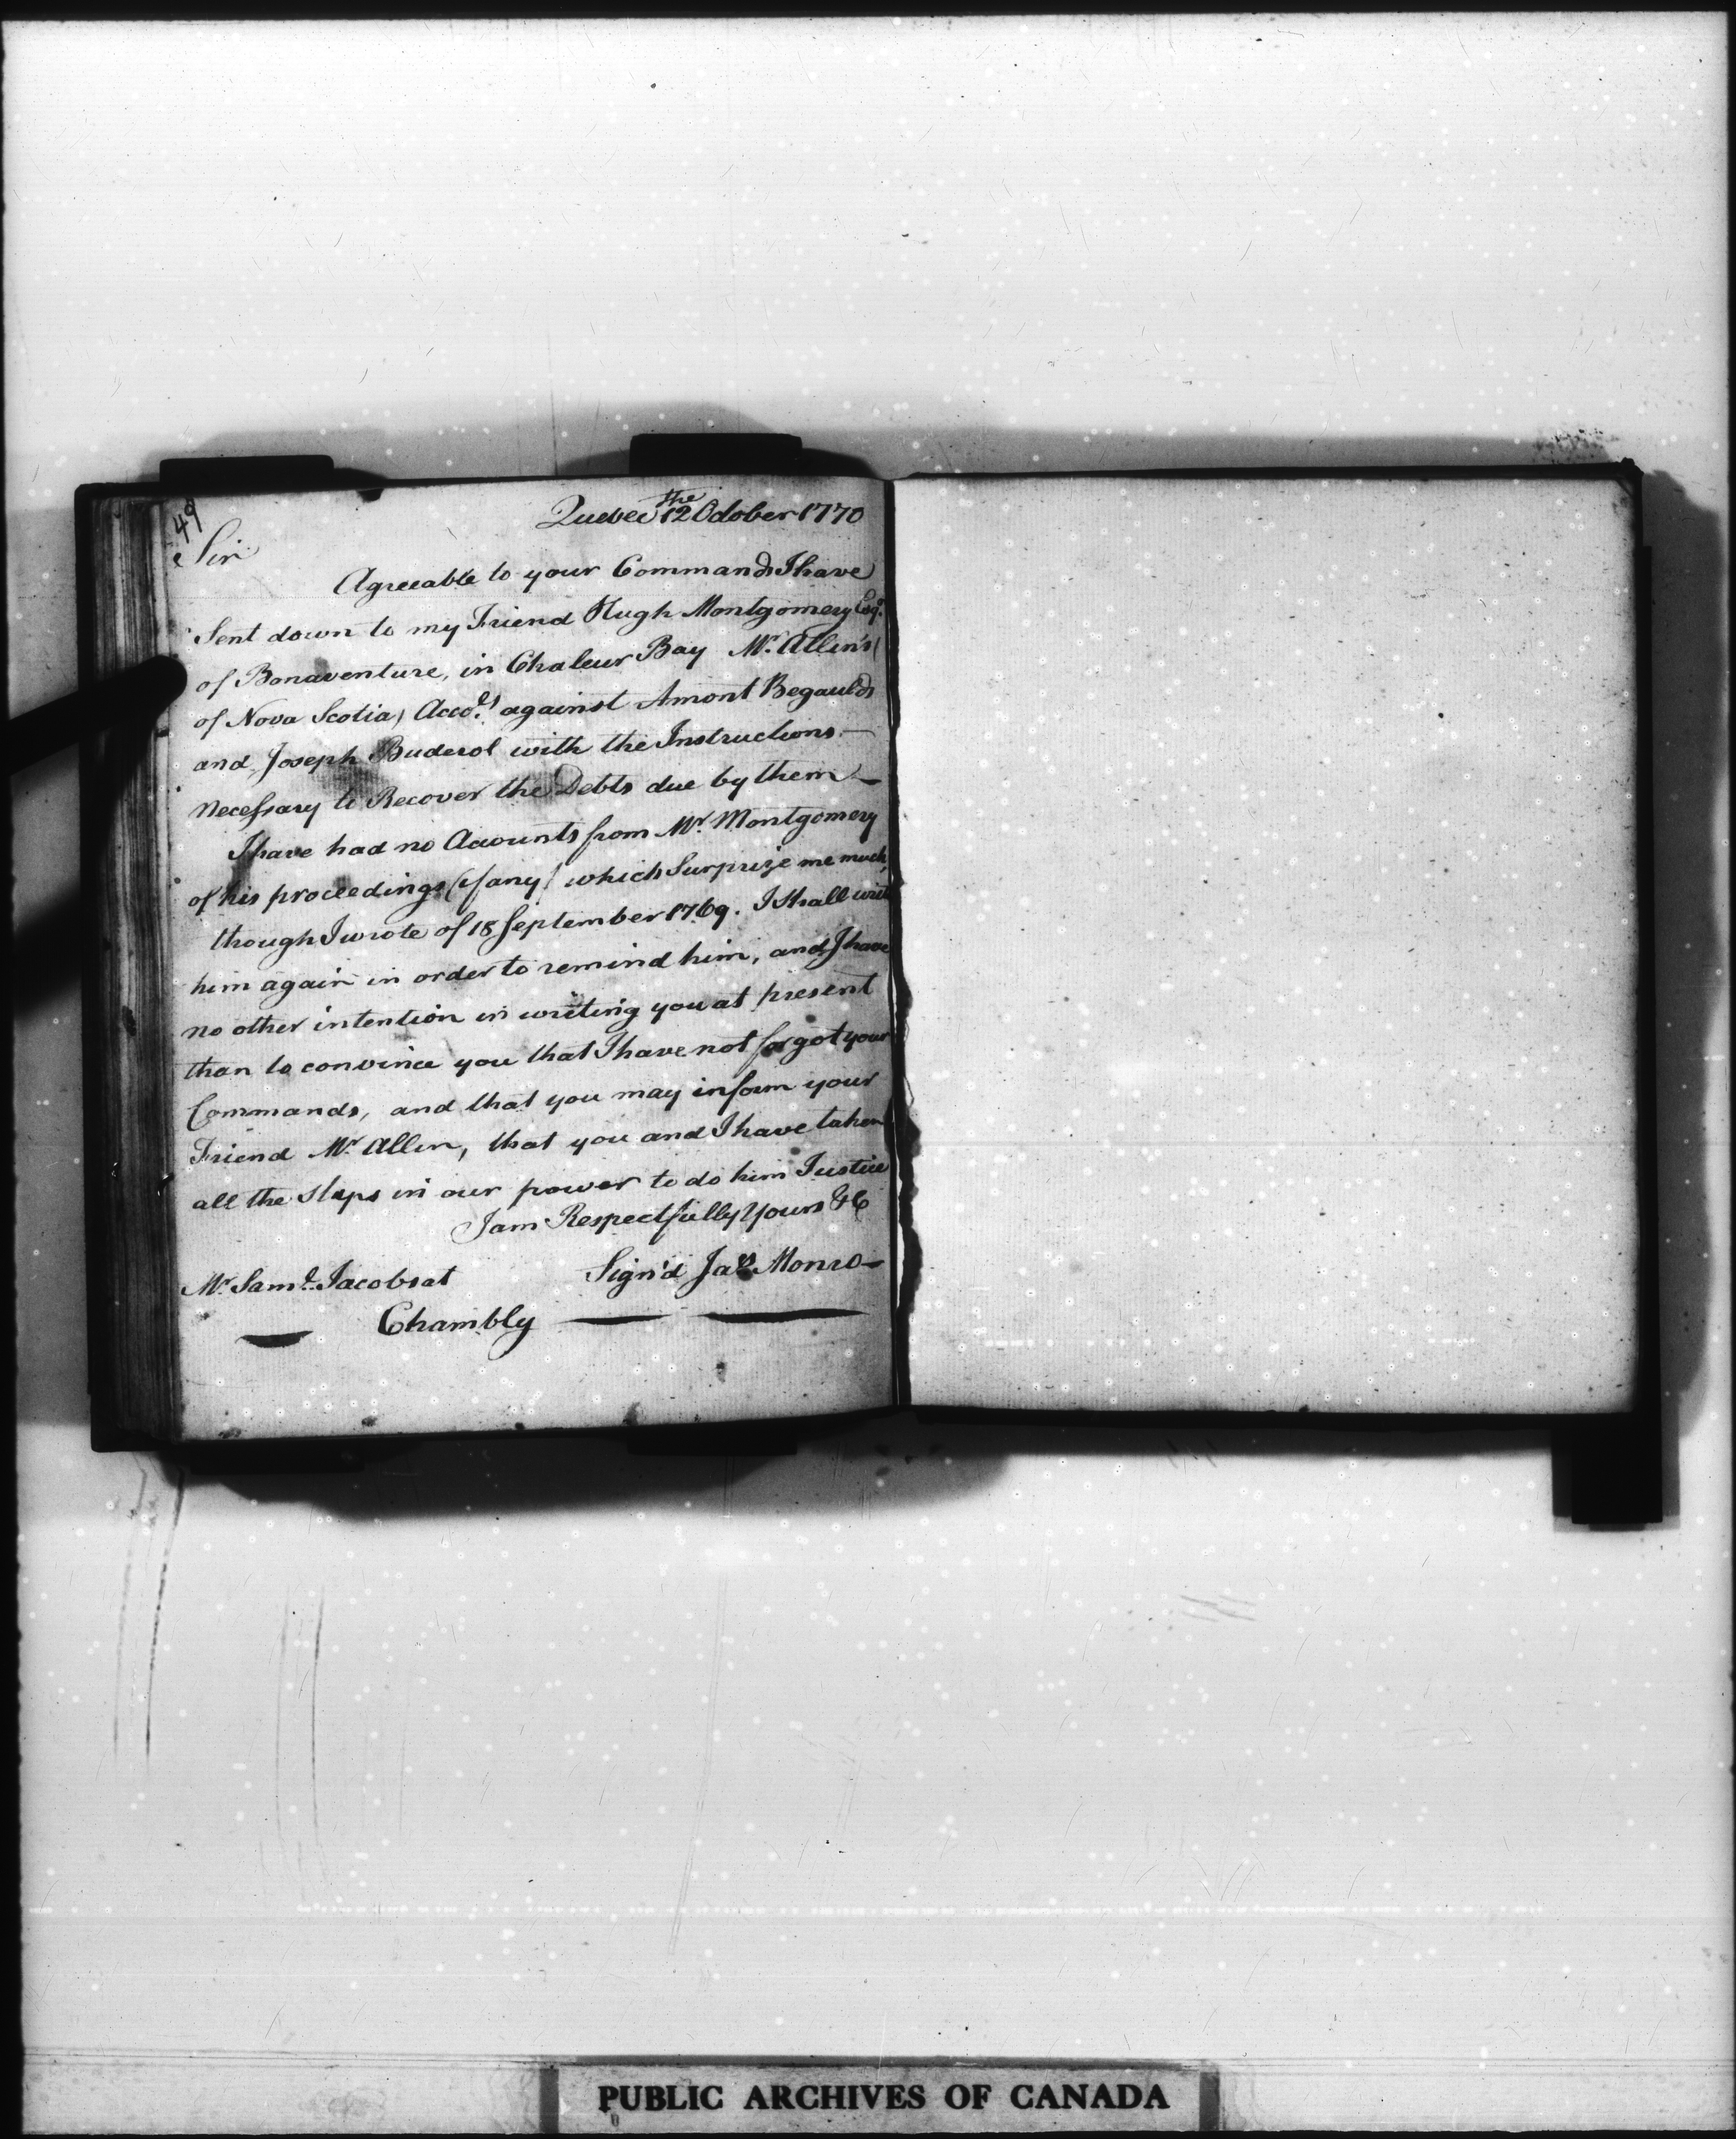 49
Quebec the 12 October 1770
Sir
Agreeable to your Commands I have
Sent down to my Friend Hugh Montgomery Esqr.
of Bonaventure, in Chaleur Bay Mr. Allin's (
of Nova Scotia) Accots. against Amont Begaulds
and Joseph Buderol with the Instructions —
necessary to Recover the Debts due by them —
I have had no Accounts from Mr. Montgomery
of his proceedings (if any) which Surprize me much,
though I wrote of 18 September 1769. I Shall write
him again in order to remind him, and I have
no other intention in writing you at present
than to convince you that I have not forgot your
Commands, and that you may inform your
Friend Mr. Allin, that you and I have taken
all the Steps in our power to do him Justice
I am Respectfully Yours &C
Mr. Saml. Jacobs at Sign'd Jas. Monro —
Chambly
PUBLIC ARCHIVES OF CANADA